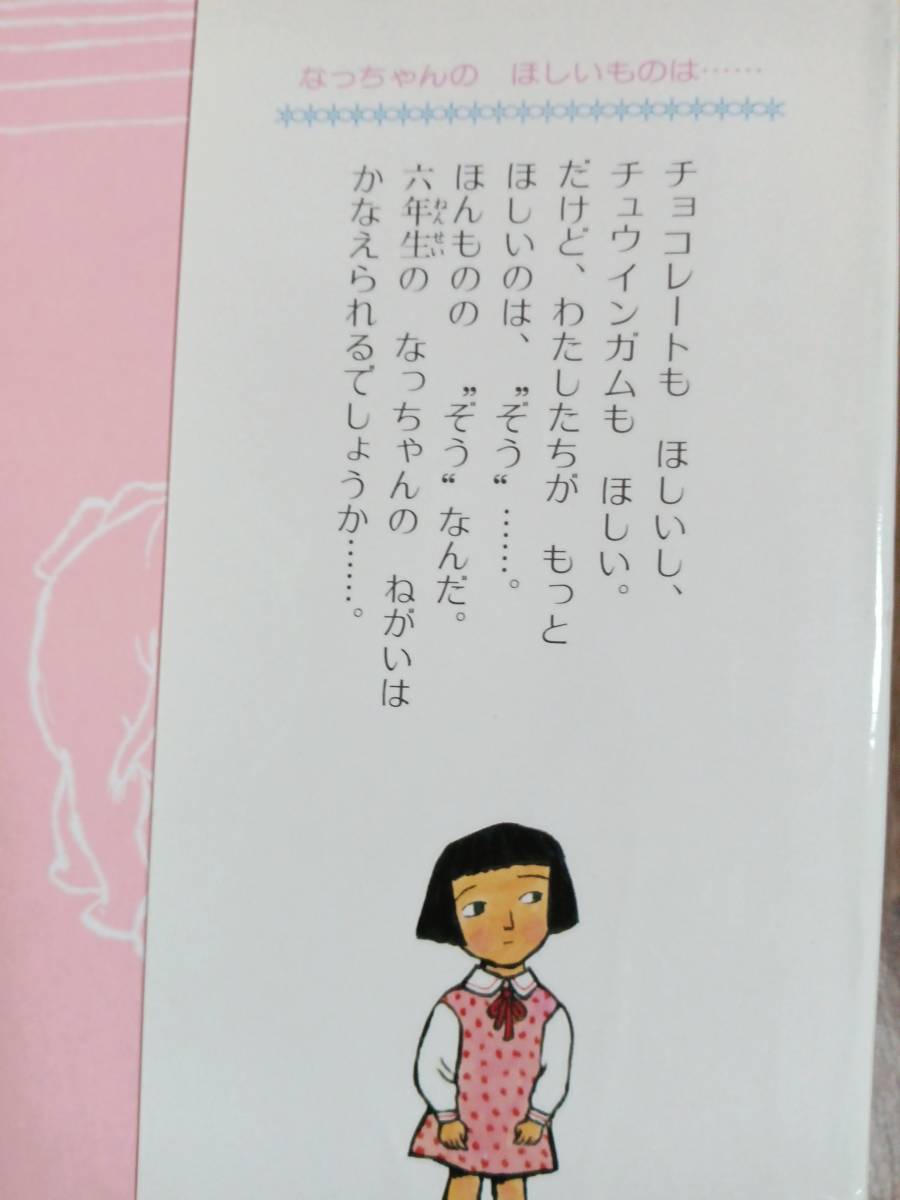 なっちゃんの　ほしいものは……
チョコレートも　ほしいし、
チュウインガムも　ほしい。
だけど、わたしたちが　もっと
ほしいのは、〝ぞう〟……。
ほんものの　〝ぞう〟なんだ。
六年生の　なっちゃんの　ねがいは
かなえられるでしょうか……。